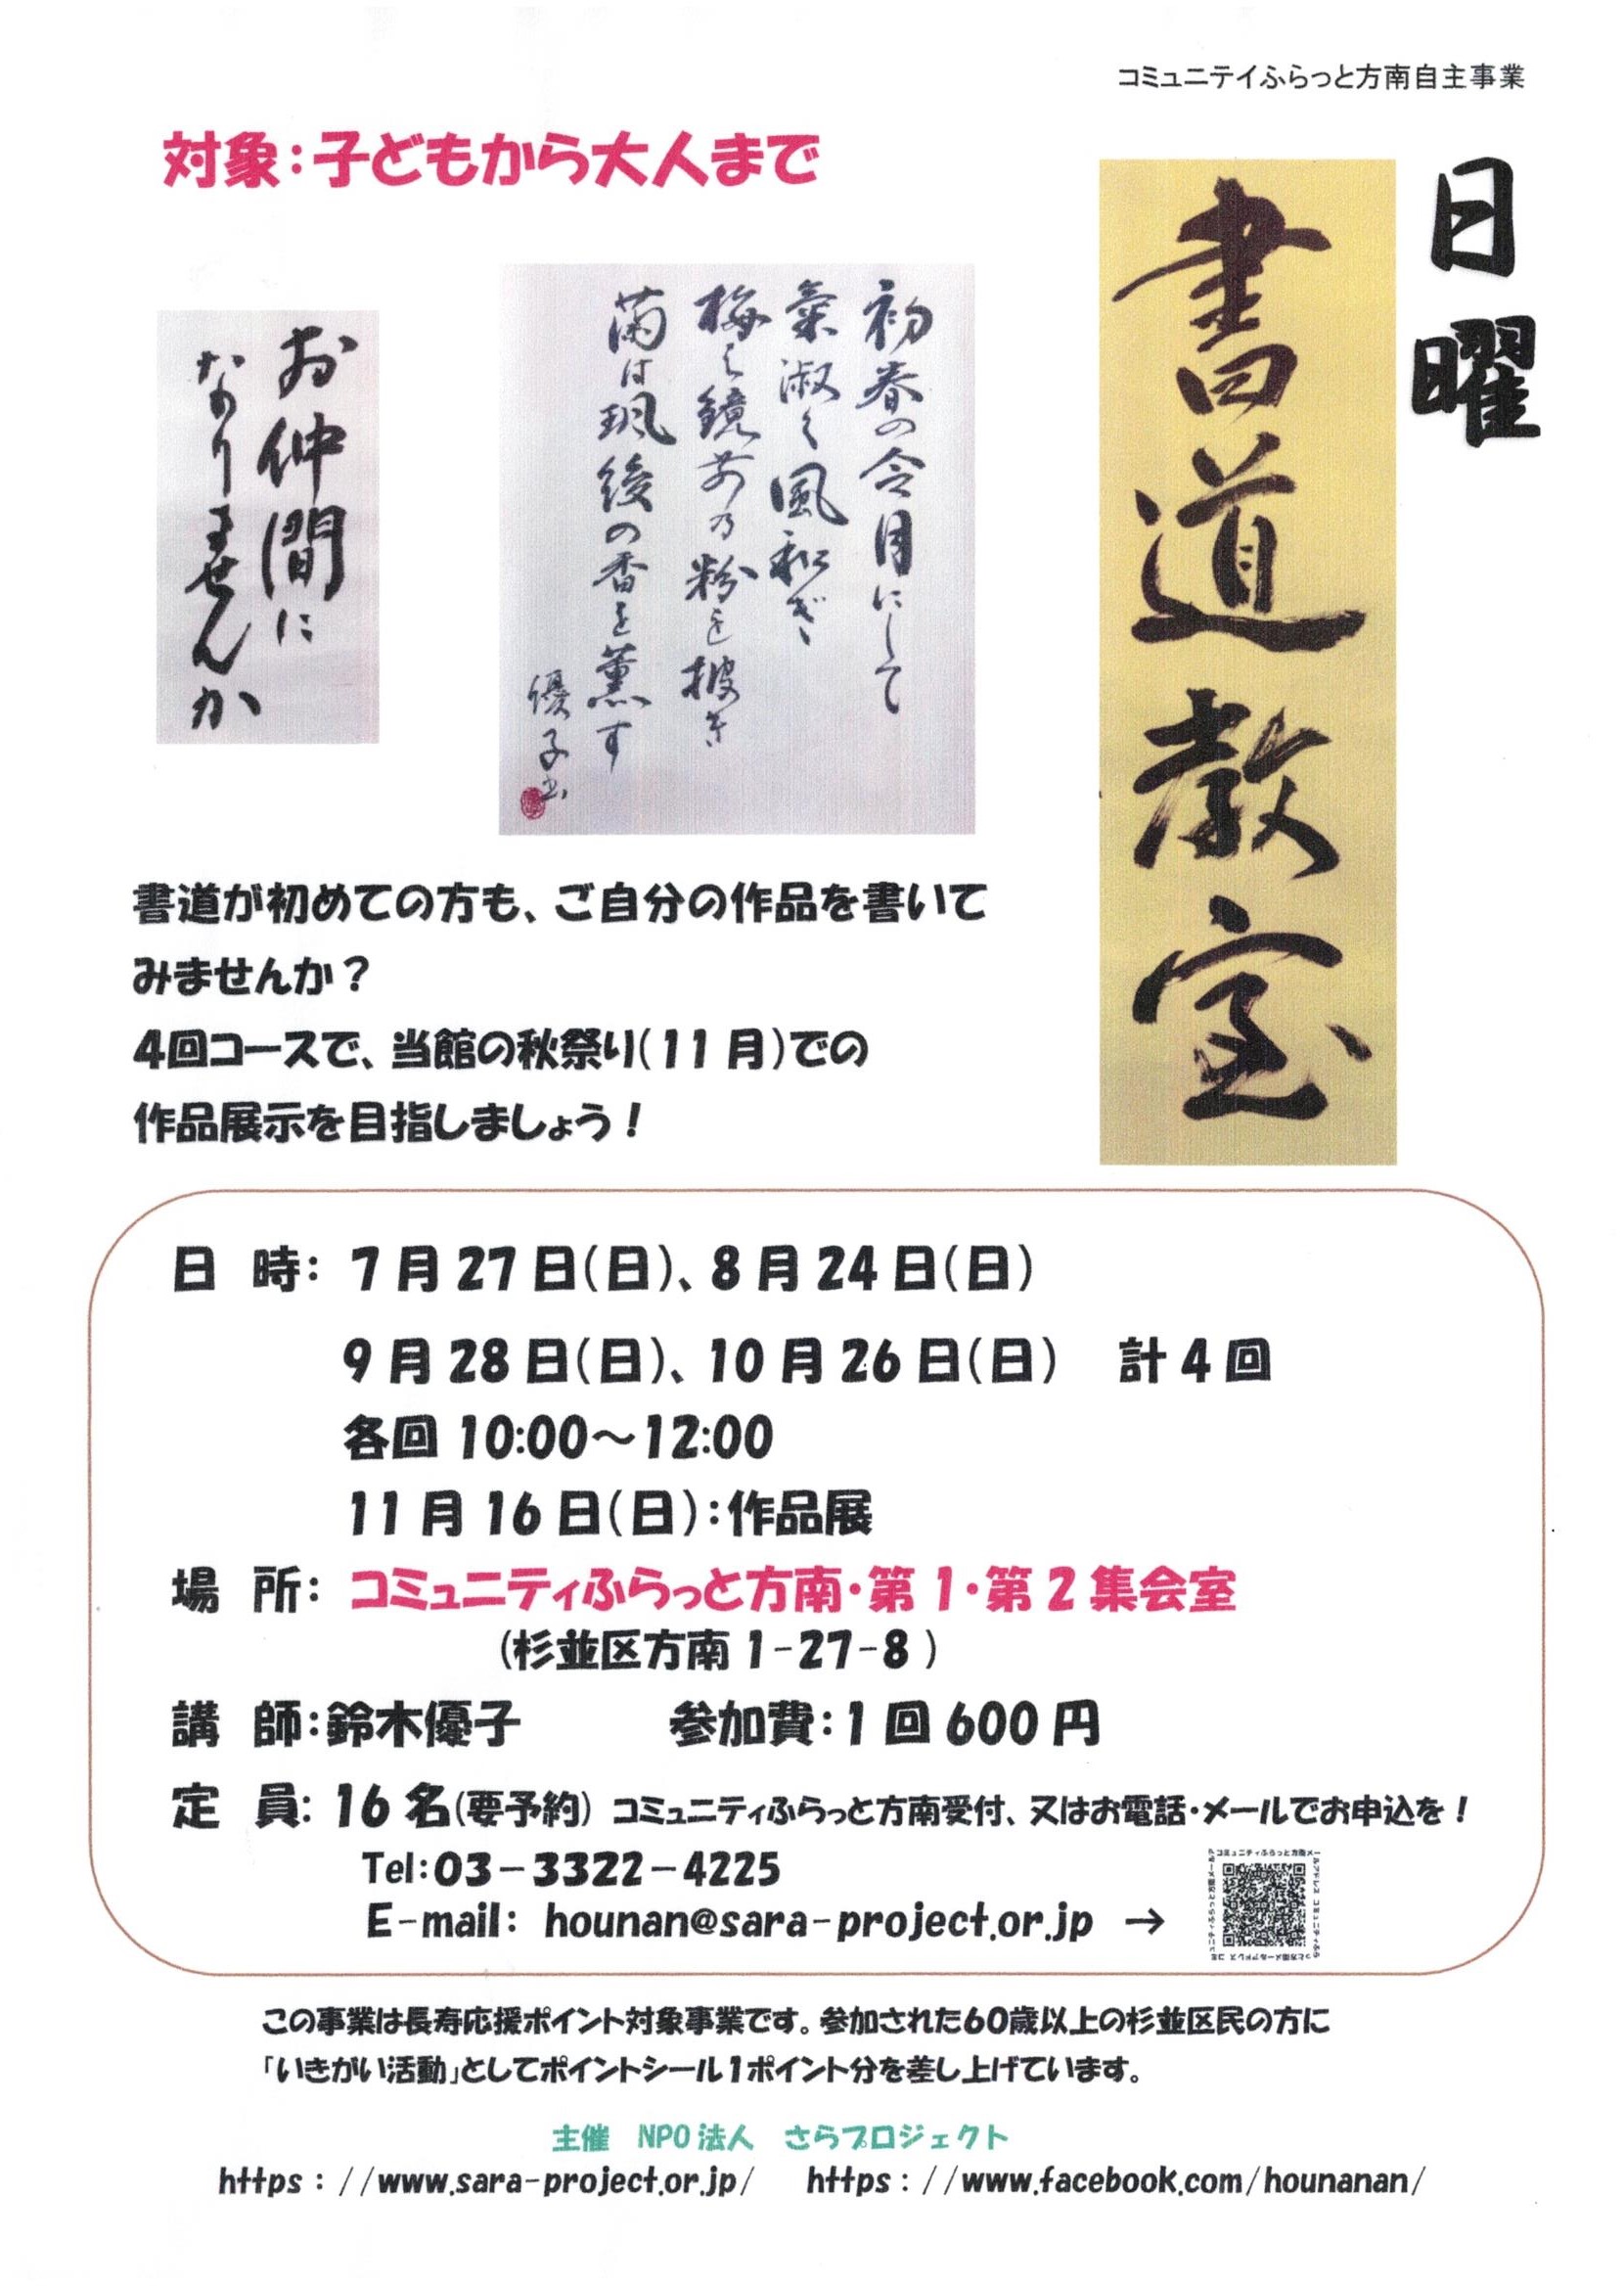 コミュニテイふらっと方南自主事業
対象：子どもから大人まで
日曜
書道教室
初春の令月にして
氣淑く風和ぎ
梅は鏡前の粉を披き
蘭は珮後の香を薫す
優子書
お仲間に
なりませんか
書道が初めての方も、ご自分の作品を書いて
みませんか？
4回コースで、当館の秋祭り(11月)での
作品展示を目指しましょう！
日 時： 7月27日(日)、8月24日(日)
9月28日(日)、10月26日(日) 計4回
各回 10:00～12:00
11月16日(日)：作品展
場 所： コミュニティふらっと方南・第1・第2集会室
(杉並区方南1-27-8)
講 師：鈴木優子 参加費：1回600円
定 員： 16名(要予約) コミュニティふらっと方南受付、又はお電話・メールでお申込を！
Tel：03－3322－4225
E-mail： hounan@sara-project.or.jp →
この事業は長寿応援ポイント対象事業です。参加された60歳以上の杉並区民の方に
「いきがい活動」としてポイントシール1ポイント分を差し上げています。
主催 NPO法人 さらプロジェクト
https：//www.sara-project.or.jp/ https：//www.facebook.com/hounanan/